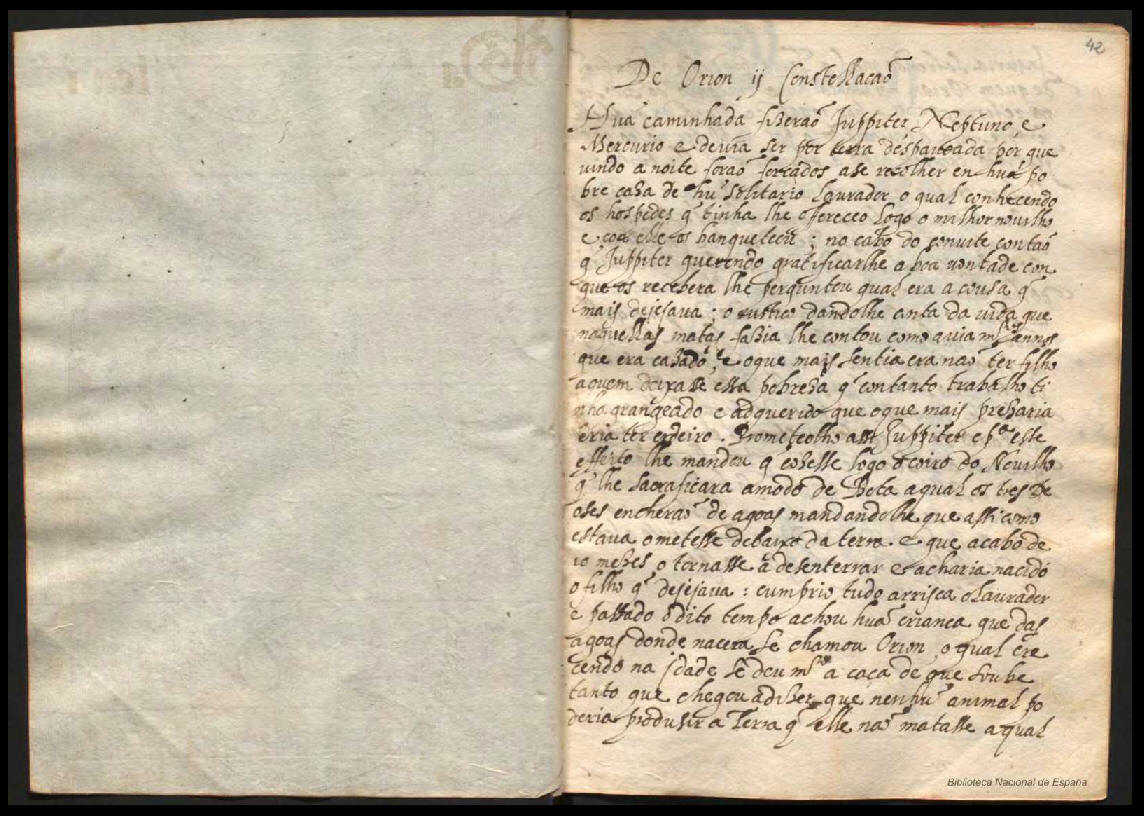 42
De Orion ij Constellacaõ
Huã caminhada fiserao Juppiter, Neptuno, e
Mercurio e devia ser por terra despauoada por que
vindo a noite forao forcados a se recolher en huã po
bre casa de hu solitario Laurador, o qual conhecendo
os hospedes q tinha lhe ofereceo logo o milhor nouilho
e coa elle os banqueteou; no cabo do convite contaõ
q Juppiter querendo gratificarlhe a boa vontade con
que os recebera lhe perguntou qual era a cousa q
mais desejava; o rustico dandolhe conta da vida que
naquellas matas fasia lhe contou como auia ms annos
que era casado, e o que mais sentia era nao ter filho
a quem deixasse essa pobresa q con tanto trabalho ti
nha grangeado e adquerido que o que mais presaria
seria ter erdeiro. Prometeolho assi Juppiter e pa este
effeito lhe mandou q cosesse logo o coiro do Nouilho
q lhe sacraficara a modo de Bota a qual os tres De
oses encherao de agoas mandandolhe que assi como
estava o metesse debaixo da terra. e que a cabo de
10 meses o tornasse a desenterrar e acharia nacido
o filho q desejava: cumprio tudo a risca o Laurador
e passado o dito tempo achou huã crianca que das
agoas donde nacera se chamou Orion, o qual cre
cendo na idade se deu mto a caca de que soube
tanto que chegou a diser que nenhu animal po
deria produsir a Terra q elle nao matasse a qual
Biblioteca Nacional de España